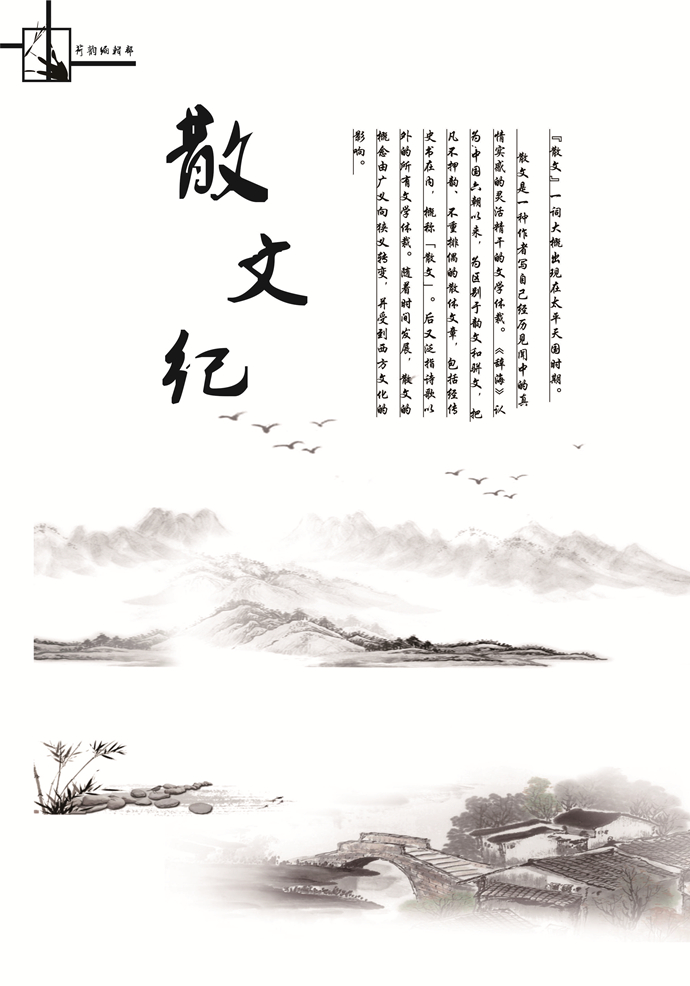 荷韵编辑部
散文纪
『散文』一词大概出现在太平天国时期。
散文是一种作者写自己经历见闻中的真
情实感的灵活精干的文学体裁。《辞海》认
为:中国六朝以来，为区别于韵文和骈文，把
凡不押韵、不重排偶的散体文章，包括经传
史书在内，概称「散文」。后又泛指诗歌以
外的所有文学体裁。随着时间发展，散文的
概念由广义向狭义转变，并受到西方文化的
影响。